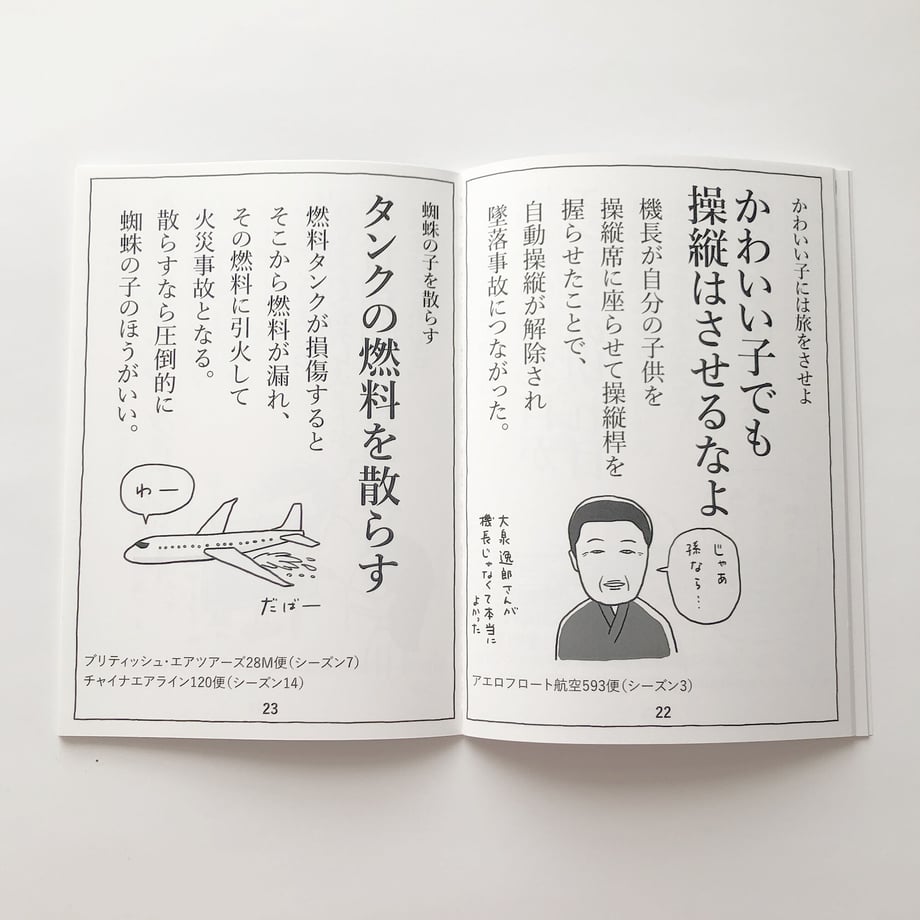 かわいい子には旅をさせよ
かわいい子でも
操縦はさせるなよ
機長が自分の子供を
操縦席に座らせて操縦桿を
握らせたことで、
自動操縦が解除され
墜落事故につながった。
じゃあ
孫なら…
大泉逸郎さんが
機長じゃなくて本当に
よかった
アエロフロート航空593便(シーズン3)
22
蜘蛛の子を散らす
タンクの燃料を散らす
燃料タンクが損傷すると
そこから燃料が漏れ、
その燃料に引火して
火災事故となる。
散らすなら圧倒的に
蜘蛛の子のほうがいい。
わー
だばー
ブリティッシュ・エアツアーズ28M便(シーズン7)
チャイナエアライン120便(シーズン14)
23